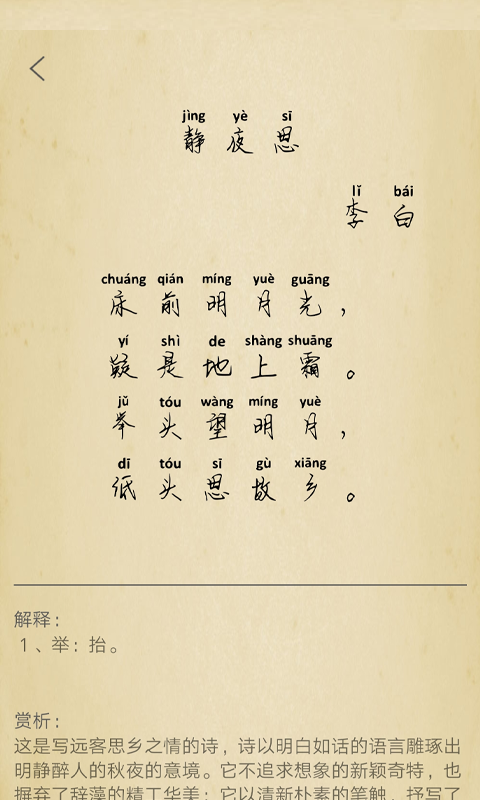 jìng yè sī
静夜思
lǐ bái
李白
chuáng qián míng yuè guāng
床前明月光，
yí shì de shàng shuāng
疑是地上霜。
jǔ tóu wàng míng yuè
举头望明月，
dī tóu sī gù xiāng
低头思故乡。
解释：
1、举：抬。
赏析：
这是写远客思乡之情的诗，诗以明白如话的语言雕琢出
明静醉人的秋夜的意境。它不追求想象的新颖奇特，也
摒弃了辞藻的精工华美；它以清新朴素的笔触，抒写了